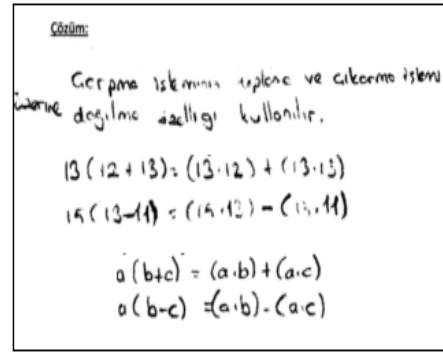 Çözüm:
Çarpma işleminin toplama ve çıkarma işlemi
üzerine dağılma özelliği kullanılır.
13(12+13)=(13·12)+(13·13)
15(13-11)=(15·13)-(15·11)
a(b+c)=(a·b)+(a·c)
a(b-c)=(a·b)-(a·c)